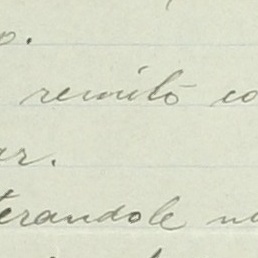 o.
remito co
ar.
terandole